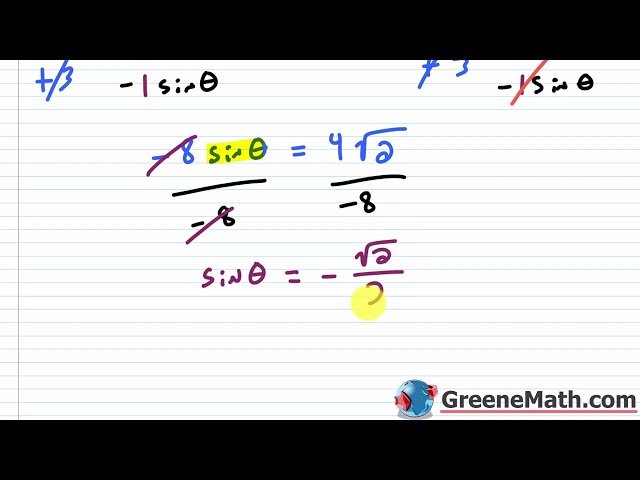 +/3 + 3
-1 sinθ -1 sinθ
-8 sinθ = 4√2
-8 -8
sinθ = - √2
2
GreeneMath.com